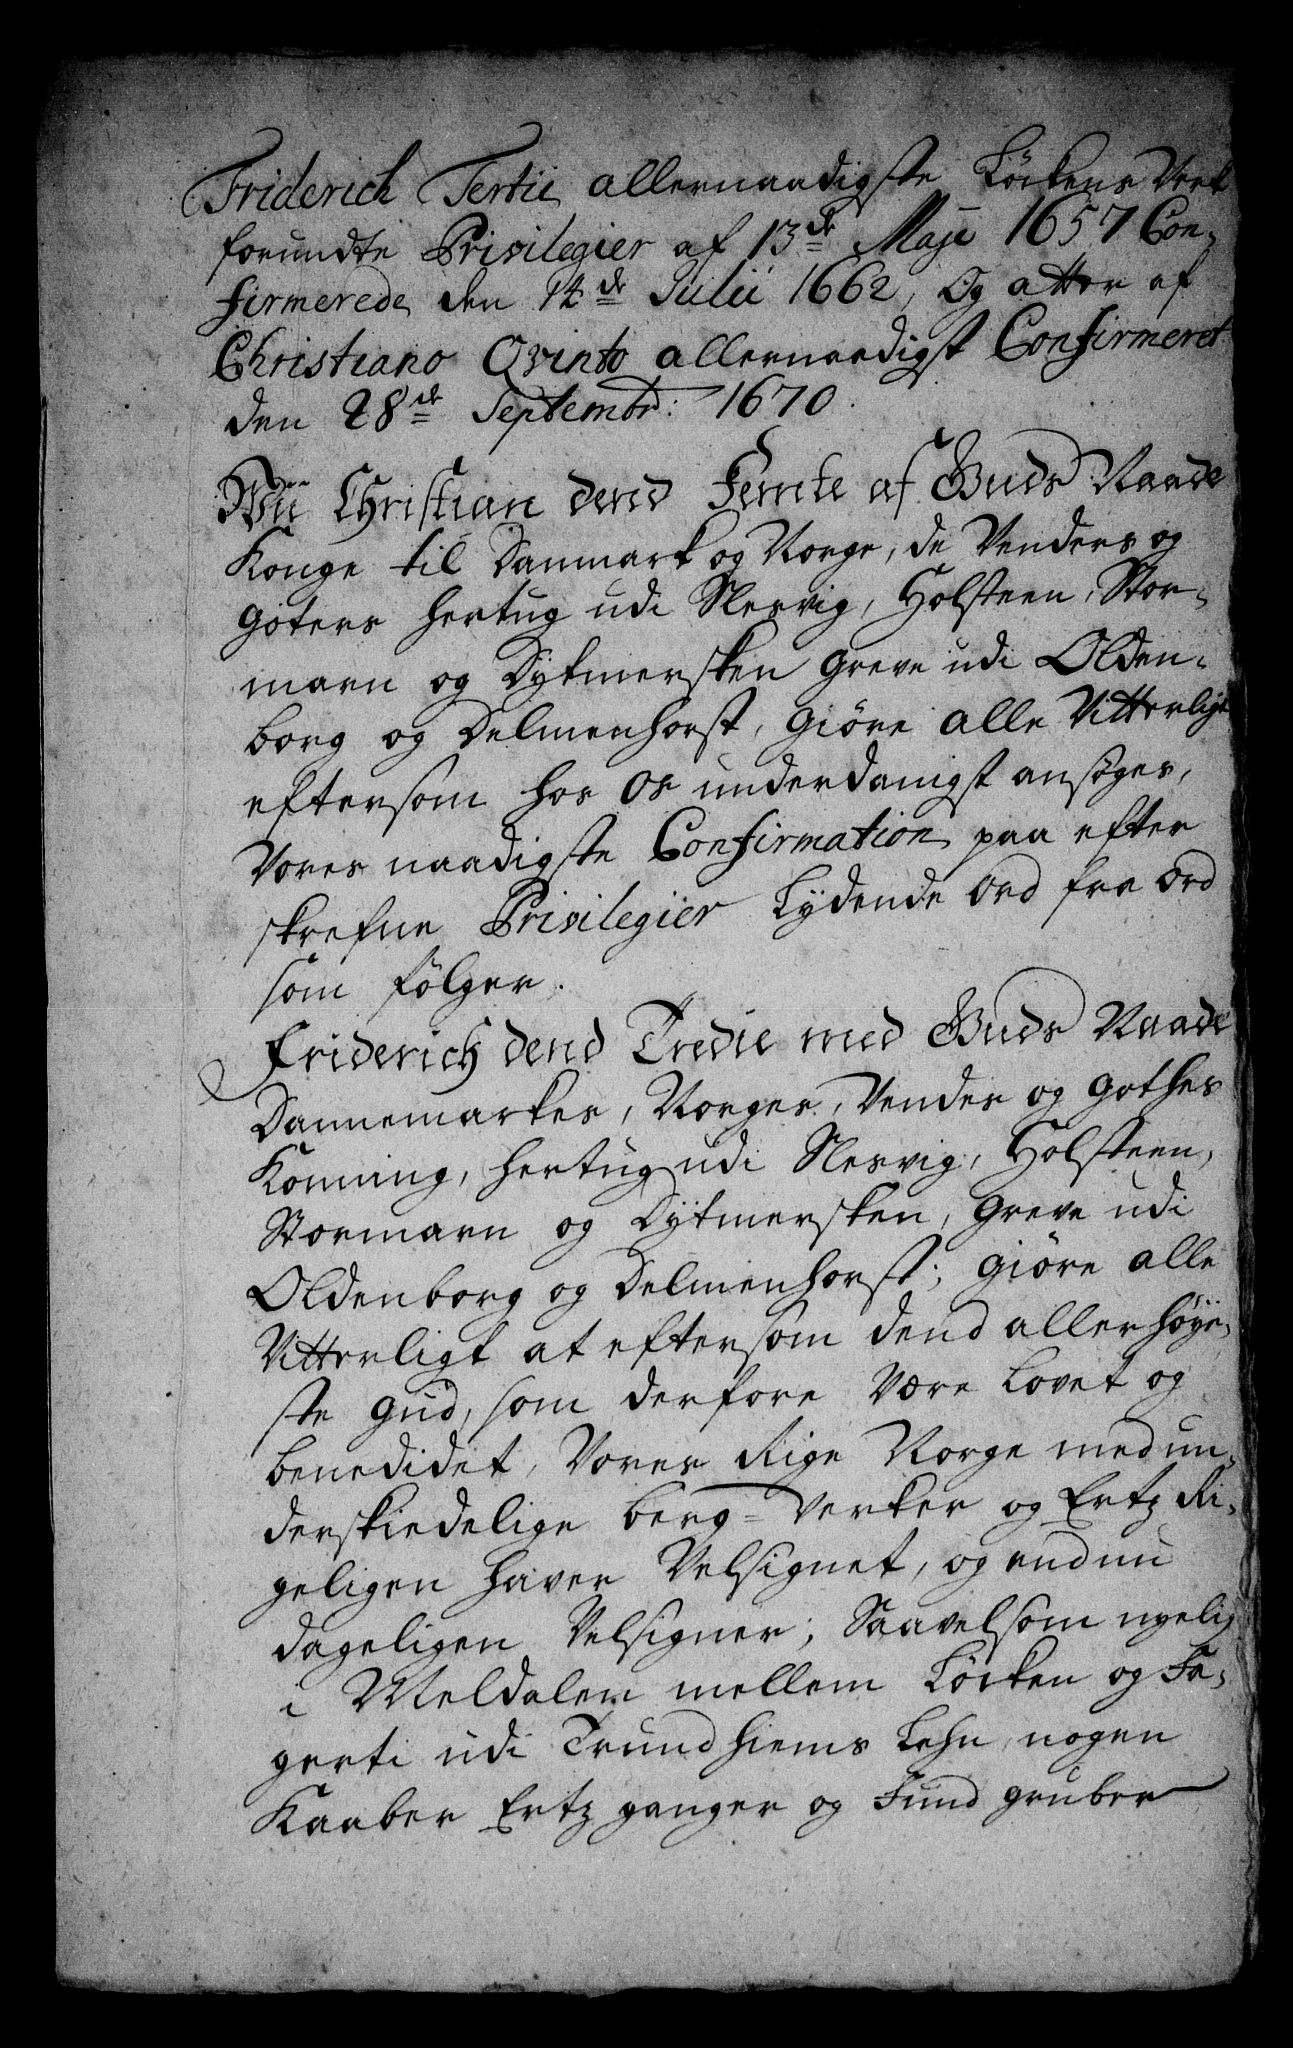 Friderich Tertii allernaadigste Löckens Verk
forundte Privilegier af 13de Maji 1657 Con-
firmerede den 14de Julii 1662, Og atter af
Christiano Qvinto allernaadigst Confirmeret
den 28de Septembr: 1670.
Wii Christian dend Femte af Guds Naade
Konge til Danmark og Norge, de Venders og
Goters Hertug udi Slesvig, Holsteen, Stor-
marn og Dytmersken Greve udi Olden-
borg og Delmenhorst, Giöre alle Vitterligt
eftersom hos Os underdanigst ansöges,
Vores naadigste Confirmation paa efter
skrefne Privilegier Lydende Ord fra Ord
som fölger.
Friderich dend Tredie med Guds Naade
Dannemarkes, Norges, Vendes og Gothes
Konning, Hertug udi Slesvig, Holsteen,
Stormarn og Dytmersken, Greve udi
Oldenborg og Delmenhorst; Giöre alle
Vitterligt at eftersom dend allerhöye-
ste Gud, som derfore Være Lovet og
benedidet, Vores Rige Norge med un-
derskiedelige berg-Verker og Ertz Ri-
geligen haver Velsignet, og endnu
dageligen Velsigner; Saavelsom nyelig
i Meldalen mellem Löcken og Fa-
gerli udi Trundhiems Lehn nogen
Kaaber Ertz ganger og Fund gruber